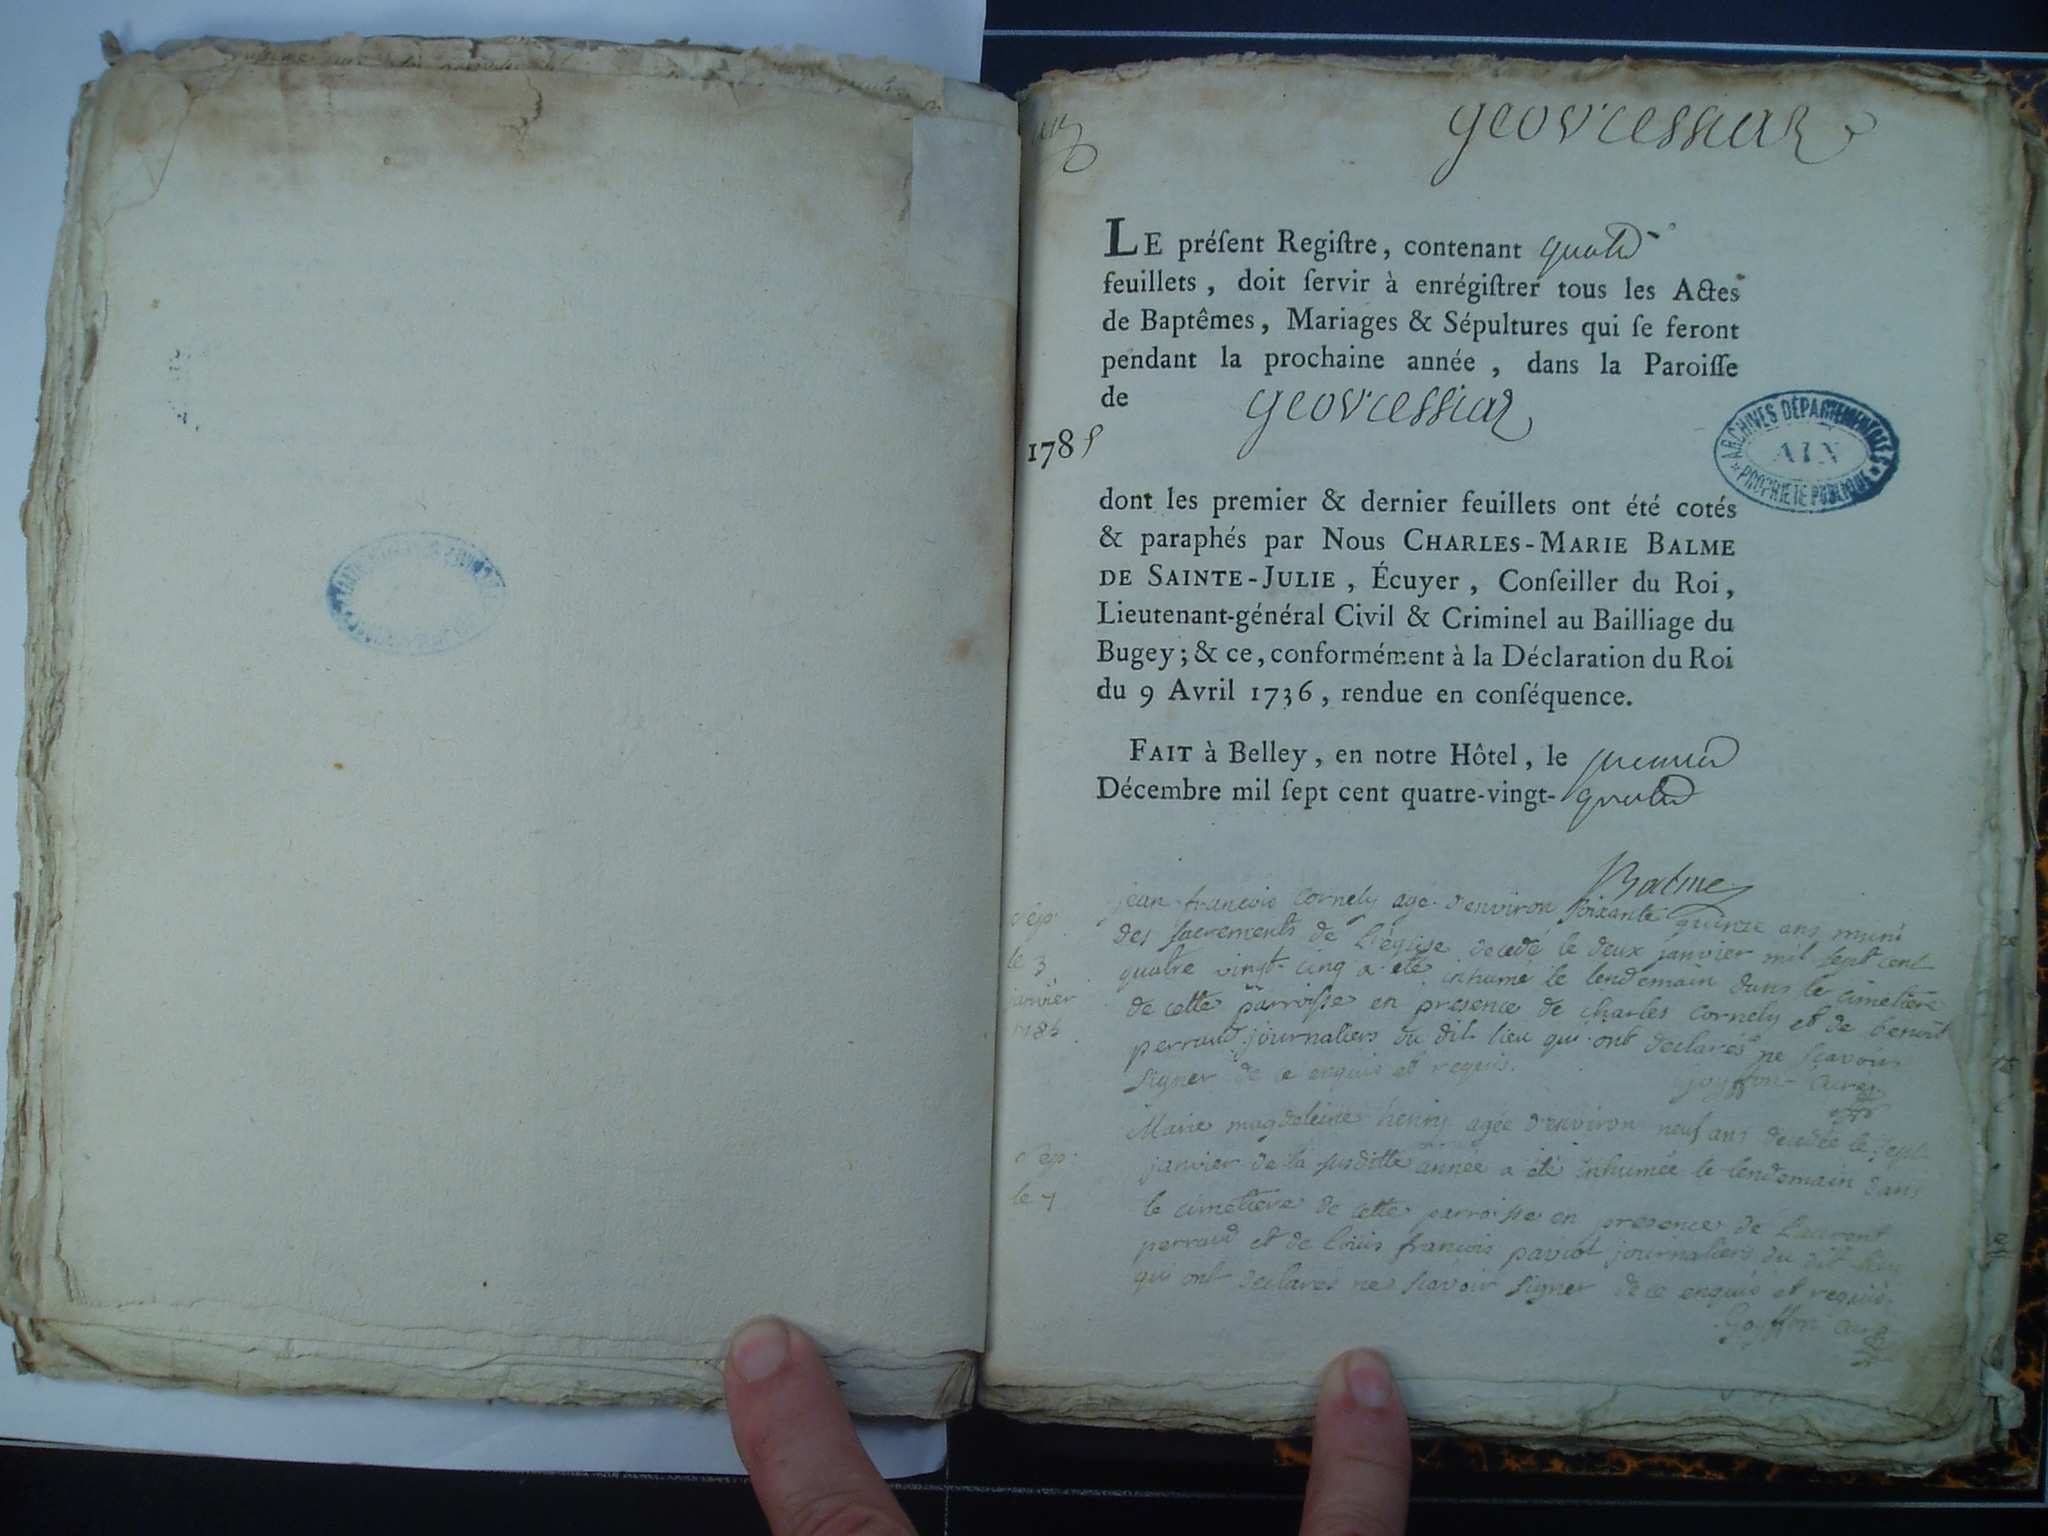 geovressiat
LE préſent Regiſtre, contenant quatre
feuillets, doit ſervir à enrégiſtrer tous les Actes
de Baptêmes, Mariages & Sépultures qui ſe feront
pendant la prochaine année, dans la Paroiſſe
de geovressiat
1785
ARCHIVES DÉPARTEMENTALES
AIN
PROPRIÉTÉ PUBLIQUE
dont les premier & dernier feuillets ont été cotés
& paraphés par Nous CHARLES-MARIE BALME
DE SAINTE-JULIE, Écuyer, Conſeiller du Roi,
Lieutenant-général Civil & Criminel au Bailliage du
Bugey; & ce, conformément à la Déclaration du Roi
du 9 Avril 1736, rendue en conſéquence.
FAIT à Belley, en notre Hôtel, le premier
Décembre mil ſept cent quatre-vingt-quatre
Balme
jean francois cornely agé d'environ soixante quinze ans muni
des sacrements de l'église decedé le deux janvier mil sept cent
quatre vingt cinq a été inhumé le lendemain dans le cimetière
de cette parroisse en presence de charles cornely et de benoit
perraud journaliers du dit lieu qui ont declarés ne scavoir
signer de ce enquis et requis.
Goyffon curé
sep:
le 3
janvier
1785
Marie magdeleine henry agée d'environ neuf ans decedée le sept
janvier de la susditte année a été inhumée le lendemain dans
le cimetiere de cette parroisse en presence de Laurent
perraud et de loüis francois paviot journaliers du dit lieu
qui ont declarés ne scavoir signer de ce enquis et requis.
Goyffon curé
sep:
le 7